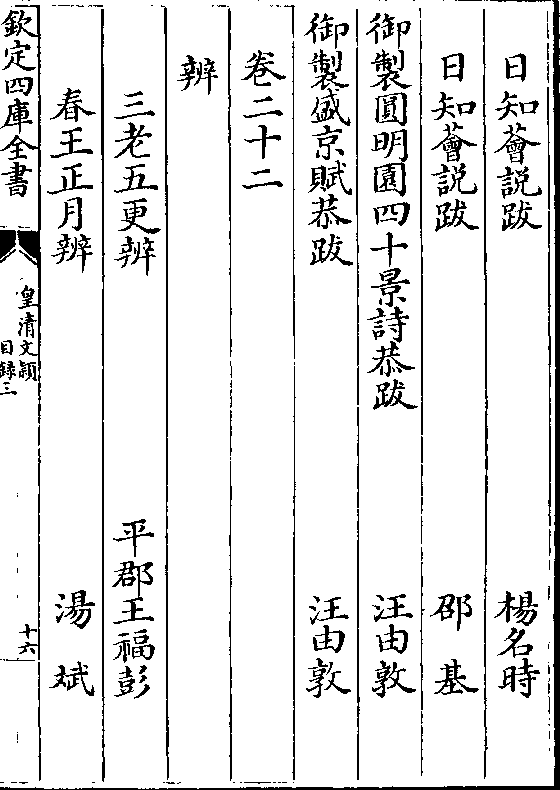 日知薈説跋　楊名時
日知薈説跋　邵基
御製圓明園四十景詩恭跋　汪由敦
御製盛京賦恭跋　汪由敦
卷二十二
辨
三老五更辨　平郡王福彭
春王正月辨　湯斌
欽定四庫全書
皇清文穎
目録三
十六